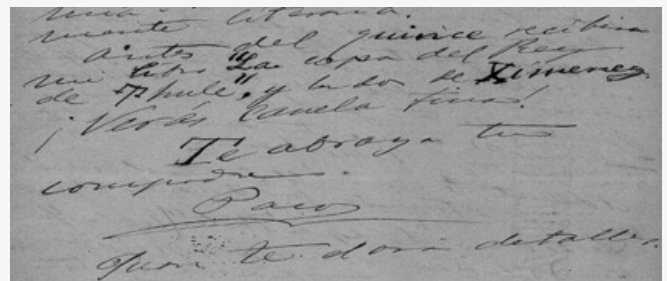 mente literaria.
Antes del quince recibira
un libro "La copa del Rey
de Thule", y lo do de Ximenez.
¡Verás canela fina!
Te abraza tu
compadre
Paco
Juan te dará detalles.